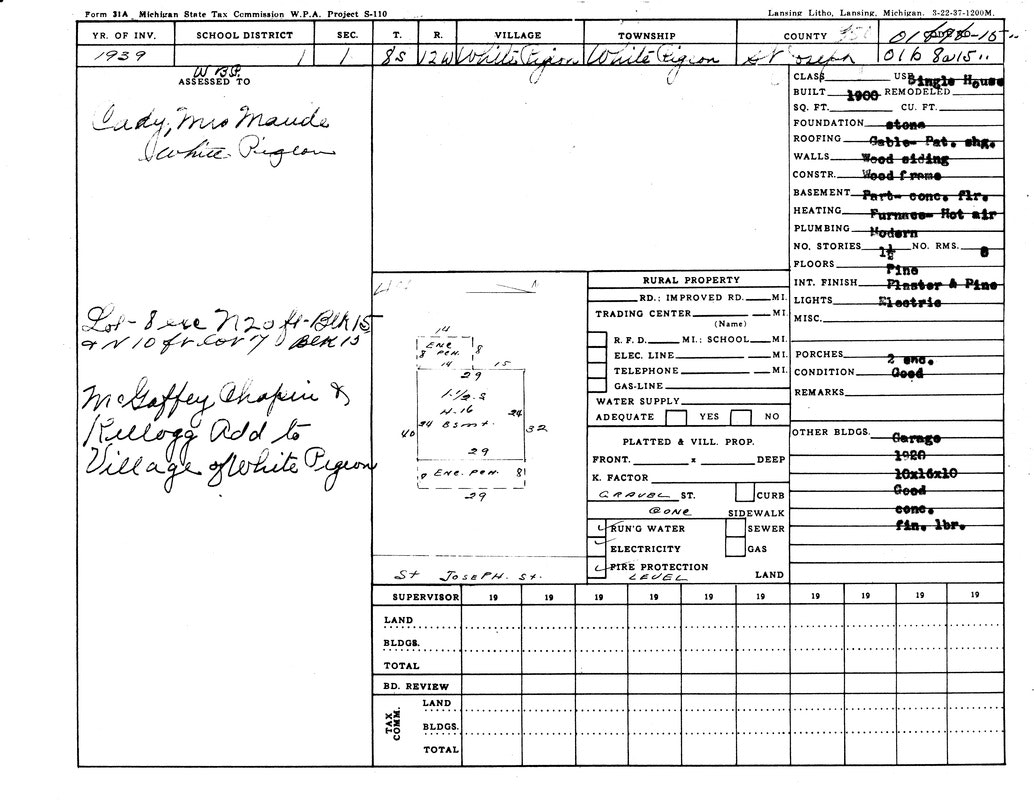 Form 31A Michigan State Tax Commission W.P.A. Project S-110
Lansing Litho, Lansing, Michigan. 3-22-37-1200M.
YR. OF INV. SCHOOL DISTRICT SEC. T. R. VILLAGE TOWNSHIP COUNTY
1939 1 1 8S 12W White Pigeon White Pigeon St Joseph 016 8a15"
ASSESSED TO
Cady, Mrs Maude
White Pigeon
Lot-8 exc N20ft-Blk15
& N 10 ft Lot 7 Blk 15
McGaffey, Chapin &
Kellogg Add to
Village of White Pigeon
N
14
ENC
8 PCH. 8
14 15
29
1-1/2 S
H-16 24
40 24 Bsmt. 32
29
8 ENC. PCH. 8
29
St JOSEPH. St.
RURAL PROPERTY
RD.; IMPROVED RD. MI.
TRADING CENTER MI.
(Name)
R. F. D. MI.; SCHOOL MI.
ELEC. LINE MI.
TELEPHONE MI.
GAS-LINE
WATER SUPPLY
ADEQUATE YES NO
PLATTED & VILL. PROP.
FRONT. x DEEP
K. FACTOR
GRAVEL ST. CURB
CONC SIDEWALK
RUN'G WATER SEWER
ELECTRICITY GAS
FIRE PROTECTION
LEVEL LAND
CLASS USE Single House
BUILT 1900 REMODELED
SQ. FT. CU. FT.
FOUNDATION stone
ROOFING Gable- Pat. shg.
WALLS Wood siding
CONSTR. Wood frame
BASEMENT Part- conc. flr.
HEATING Furnace- Hot air
PLUMBING Modern
NO. STORIES 1½ NO. RMS. 8
FLOORS Pine
INT. FINISH Plaster & Pine
LIGHTS Electric
MISC.
PORCHES 2 enc.
CONDITION Good
REMARKS
OTHER BLDGS. Garage
1920
10x16x10
Good
conc.
fin. lbr.
SUPERVISOR 19 19 19 19 19 19 19 19 19 19
LAND
BLDGS.
TOTAL
BD. REVIEW
TAX COMM.
LAND
BLDGS.
TOTAL